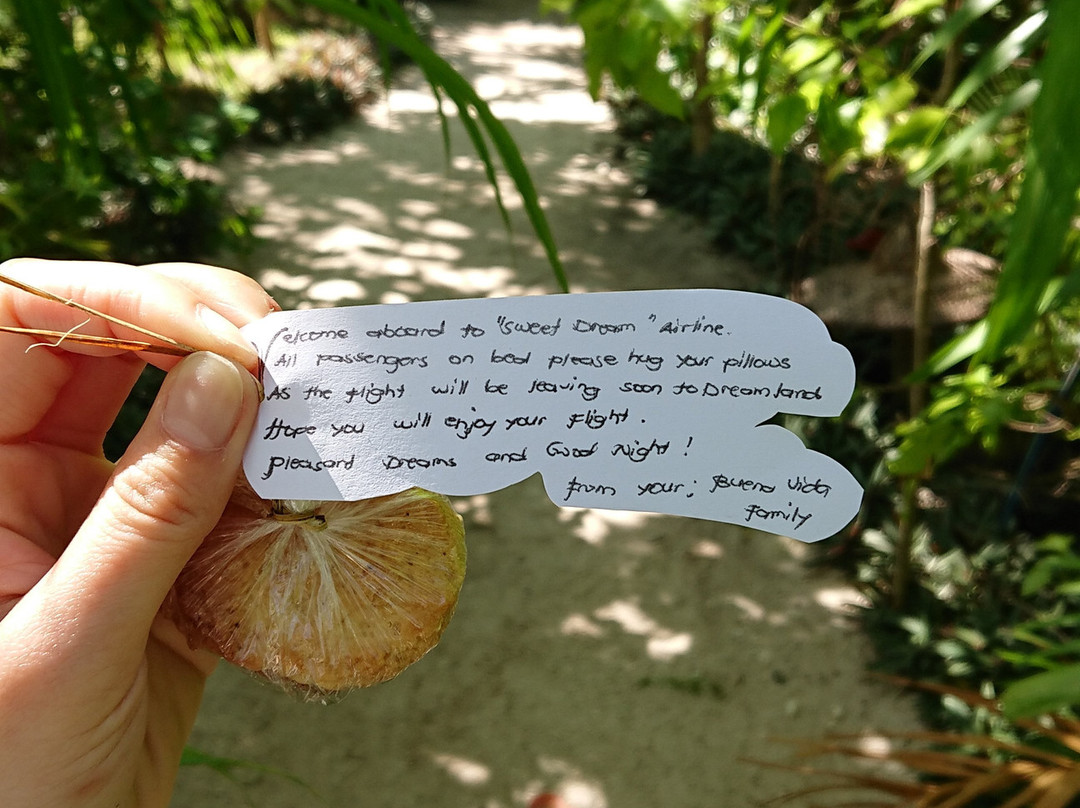 Welcome aboard to "Sweet Dream" Airline.
All passengers on bed please hug your pillows
As the flight will be leaving soon to Dreamland
Hope you will enjoy your flight.
Pleasant Dreams and Good Night!
from your; Buena Vida
family